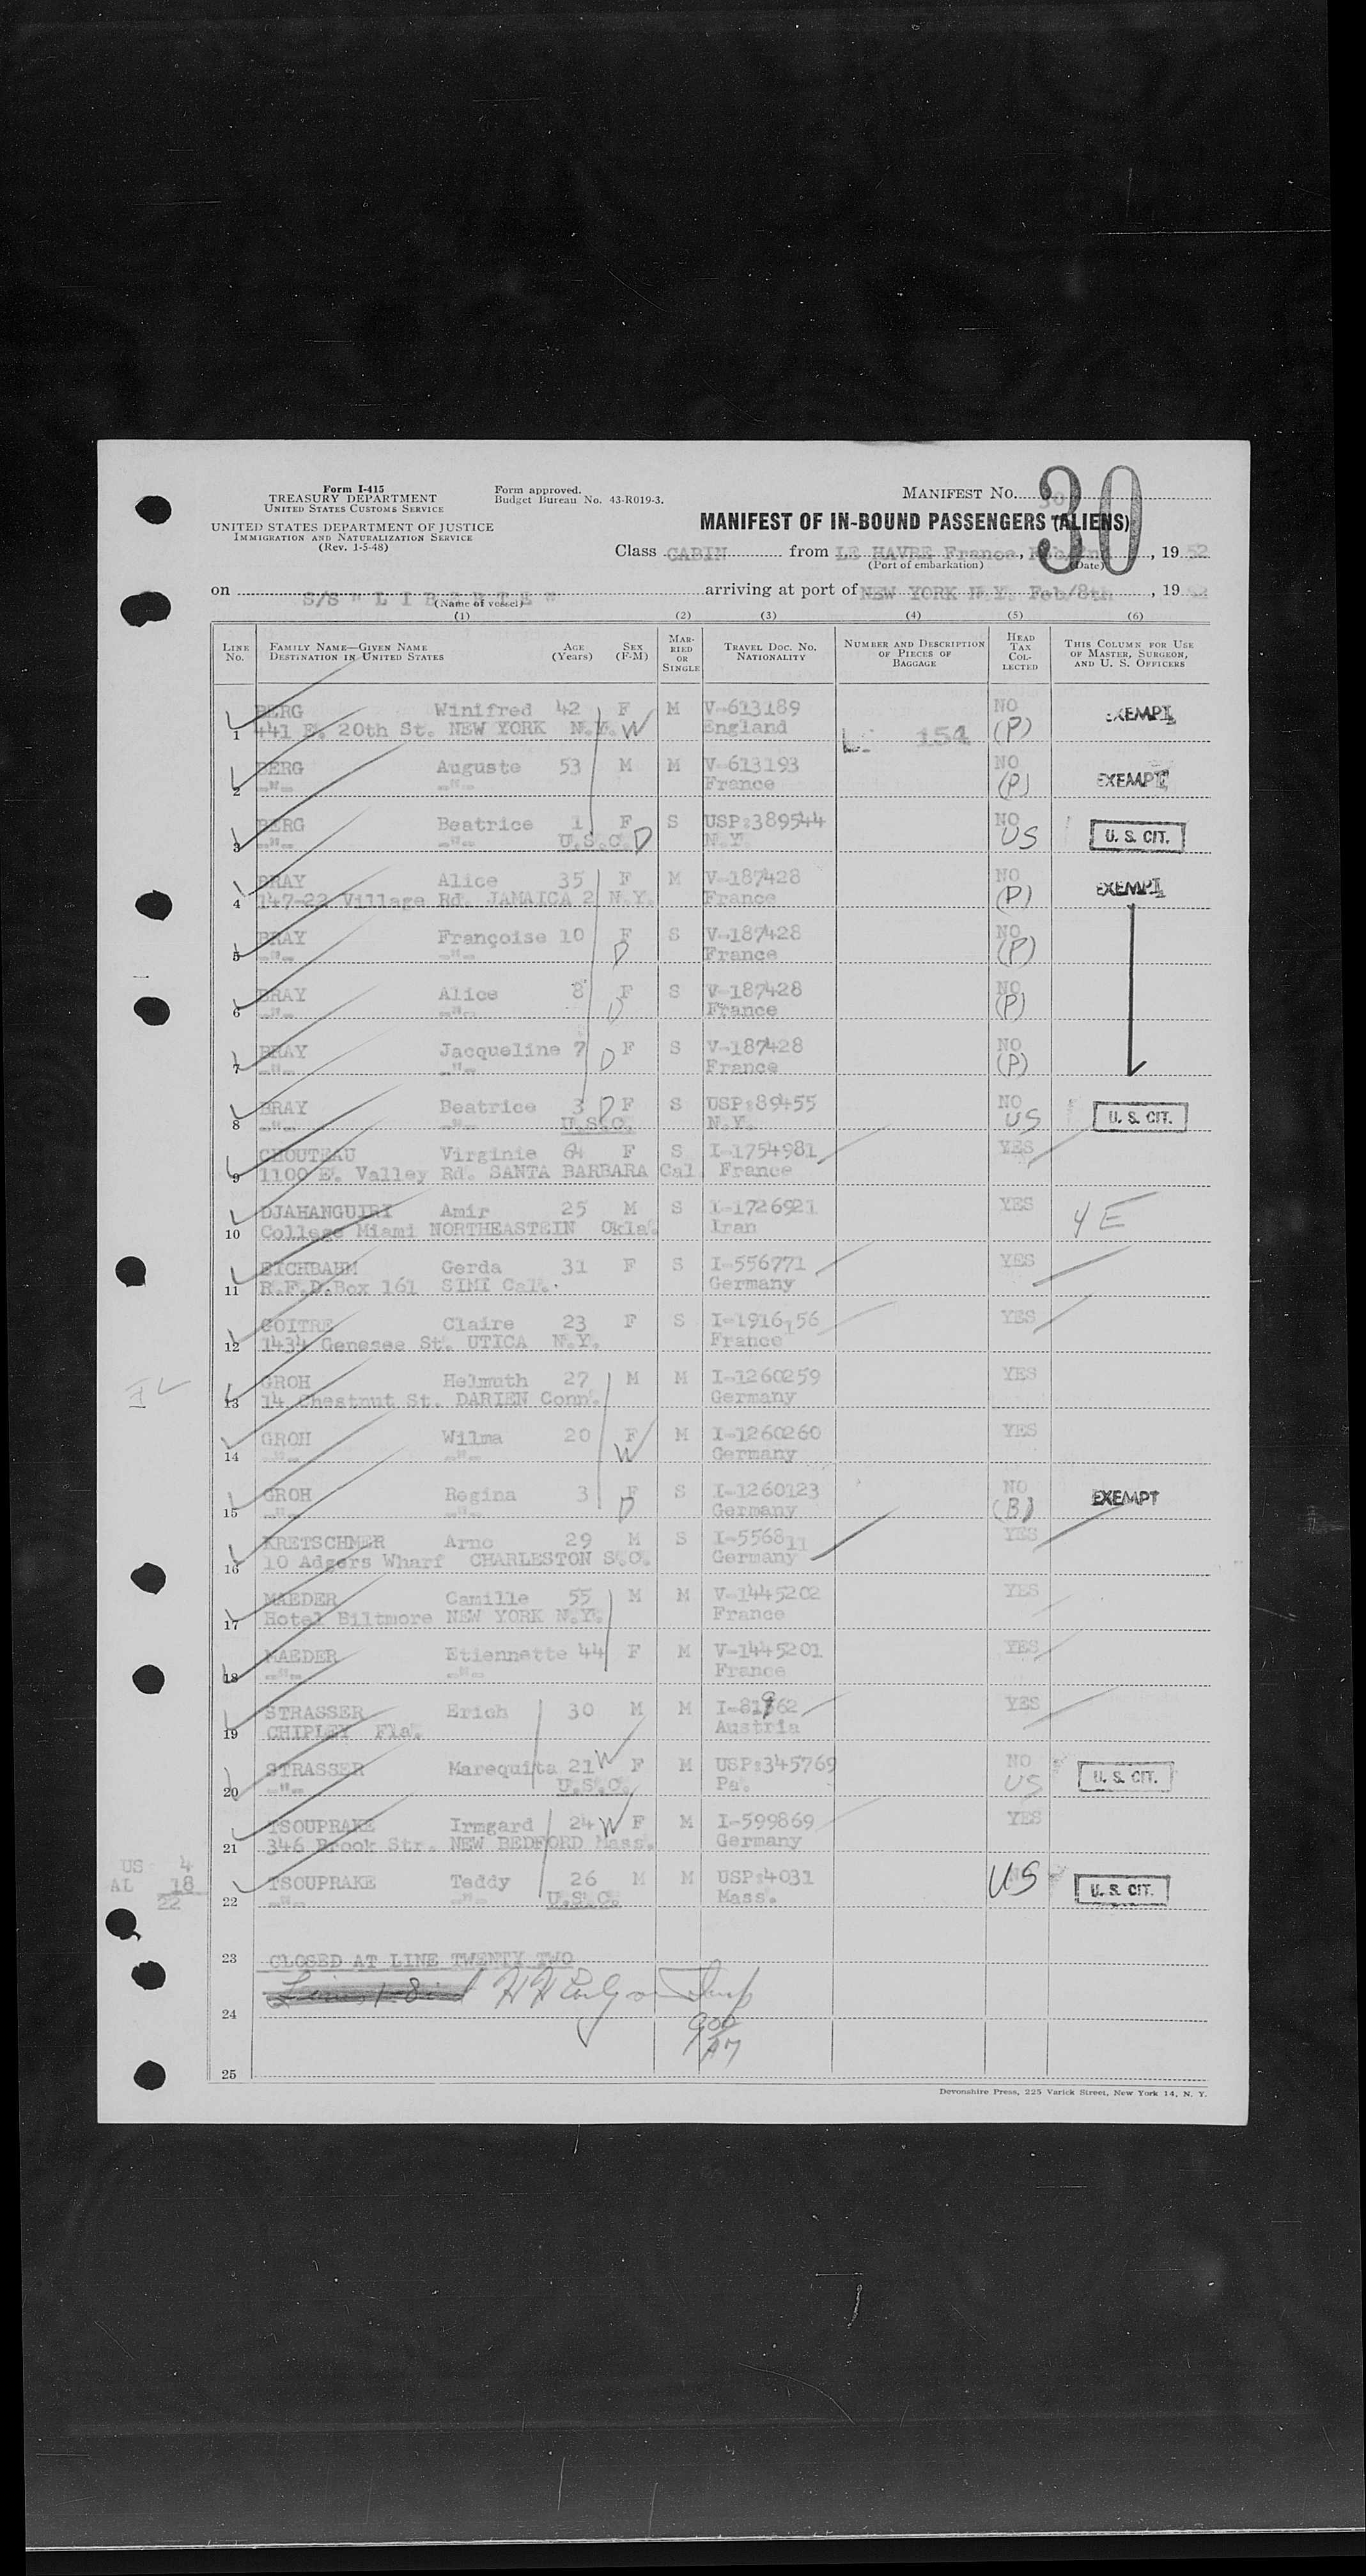 Form I-415
TREASURY DEPARTMENT
UNITED STATES CUSTOMS SERVICE
UNITED STATES DEPARTMENT OF JUSTICE
IMMIGRATION AND NATURALIZATION SERVICE
(Rev. 1-5-48)
Form approved.
Budget Bureau No. 43-R019-3.
MANIFEST No. 30
30
MANIFEST OF IN-BOUND PASSENGERS (ALIENS)
Class CABIN from LE HAVRE France, Feb/2nd, 1952
(Port of embarkation) (Date)
on S/S " L I B E R T E " arriving at port of NEW YORK N.Y. Feb/8th, 1952
(Name of vessel)
(1) (2) (3) (4) (5) (6)
LINE No. FAMILY NAME—GIVEN NAME DESTINATION IN UNITED STATES AGE (Years) SEX (F-M) MARRIED OR SINGLE TRAVEL DOC. NO. NATIONALITY NUMBER AND DESCRIPTION OF PIECES OF BAGGAGE HEAD TAX COLLECTED THIS COLUMN FOR USE OF MASTER, SURGEON, AND U. S. OFFICERS
BERG Winifred 42 F M V-613189 NO EXEMPT
1 441 E. 20th St. NEW YORK N.Y. W England 154 (P)
BERG Auguste 53 M M V-613193 NO EXEMPT
2 -"- -"- France (P)
BERG Beatrice 1 F S USP:389544 NO U. S. CIT.
3 -"- -"- U.S.C. D N.Y. US
BRAY Alice 35 F M V-187428 NO EXEMPT
4 147-22 Village Rd. JAMAICA 2 N.Y. France (P)
BRAY Françoise 10 F S V-187428 NO
5 -"- -"- D France (P)
BRAY Alice 8 F S V-187428 NO
6 -"- -"- D France (P)
BRAY Jacqueline 7 D F S V-187428 NO
7 -"- -"- France (P)
BRAY Beatrice 3 D F S USP:89455 NO U. S. CIT.
8 -"- -"- U.S.C. N.Y. US
CHOUTEAU Virginie 64 F S I-1754981 YES
9 1100 E. Valley Rd. SANTA BARBARA Cal. France
DJAHANGUIRI Amir 25 M S I-1726921 YES 4E
10 College Miami NORTHEASTEIN Okla. Iran
EICHBAHM Gerda 31 F S I-556771 YES
11 R.F.D.Box 161 SIMI Cal. Germany
GOITRE Claire 23 F S I-1916156 YES
12 1434 Genesee St. UTICA N.Y. France
GROH Helmuth 27 M M I-1260259 YES
13 14 Chestnut St. DARIEN Conn. Germany
GROH Wilma 20 F M I-1260260 YES
14 -"- -"- W Germany
GROH Regina 3 F S I-1260123 NO EXEMPT
15 -"- -"- D Germany (B)
KRETSCHMER Arno 29 M S I-556811 YES
16 10 Adgers Wharf CHARLESTON S.C. Germany
MAEDER Camille 55 M M V-1445202 YES
17 Hotel Biltmore NEW YORK N.Y. France
MAEDER Etiennette 44 F M V-1445201 YES
18 -"- -"- France
STRASSER Erich 30 M M I-81962 YES
19 CHIPLEY Fla. Austria
STRASSER Marequita 21 W F M USP:345769 NO U. S. CIT.
20 -"- U.S.C. Pa. US
TSOUPRAKE Irmgard 24 W F M I-599869 YES
21 346 Brook Str. NEW BEDFORD Mass. Germany
US 4
AL 18
22
TSOUPRAKE Teddy 26 M M USP:4031 US U. S. CIT.
22 -"- -"- U.S.C. Mass.
23 CLOSED AT LINE TWENTY TWO
24
900 AM
25
Devonshire Press, 225 Varick Street, New York 14, N. Y.